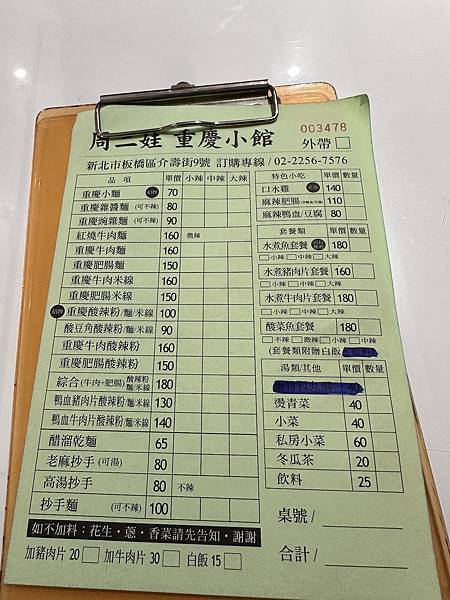 周二娃 重慶小館
003478
外帶
新北市板橋區介壽街9號 訂購專線/02-2256-7576
品項 單價 小辣 中辣 大辣
重慶小麵 招牌 70
重慶雜醬麵(可不辣) 80
重慶豌雜麵(可不辣) 90
紅燒牛肉麵 160 微辣
重慶牛肉麵 160
重慶肥腸麵 150
重慶牛肉米線 160
重慶肥腸米線 150
招牌 重慶酸辣粉/麵/米線 100
酸豆角酸辣粉/麵/米線 90
重慶牛肉酸辣粉 160
重慶肥腸酸辣粉 150
綜合(牛肉+肥腸)酸辣粉麵/米線 180
鴨血豬肉片酸辣粉/麵/米線 130
鴨血牛肉片酸辣粉/麵/米線 140
醋溜乾麵 65
老麻抄手(可湯) 80
高湯抄手 80 不辣
抄手麵(可不辣) 100
如不加料：花生、蔥、香菜請先告知，謝謝
加豬肉片 20 加牛肉片 30 白飯 15
特色小吃 單價 數量
口水雞 140
麻辣肥腸 110
麻辣鴨血/豆腐 80
套餐類 單價 數量
水煮魚套餐 180
小辣 中辣 大辣
水煮豬肉片套餐 160
小辣 中辣 大辣
水煮牛肉片套餐 180
小辣 中辣 大辣
酸菜魚套餐 180
不辣 微辣 小辣 中辣
(套餐類附贈白飯
湯類/其他 單價 數量
燙青菜 40
小菜 40
私房小菜 60
冬瓜茶 20
飲料 25
桌號/
合計/